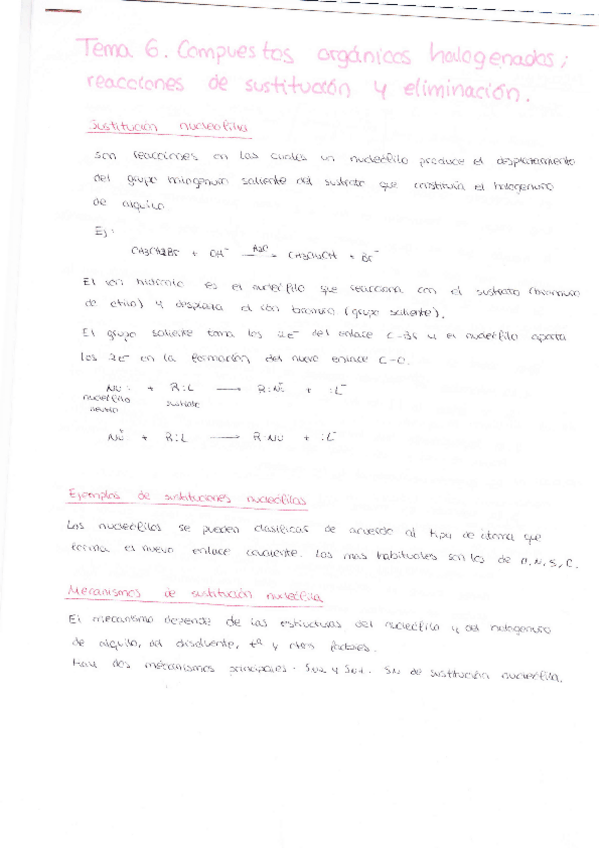 Tema 6. Compuestos orgánicos halogenados;
reacciones de sustitución y eliminación.
Sustitución nucleofílica
Son reacciones en las cuales un nucleófilo produce el desplazamiento
del grupo halogenuro saliente del sustrato que constituía el halogenuro
de alquilo
Ej:
CH3CH2Br + OH⁻ → CH3CH2OH + Br⁻
El ión hidróxido es el nucleófilo que reacciona con el sustrato (bromuro
de etilo) y desplaza el ión bromuro (grupo saliente).
El grupo saliente toma los 2e⁻ del enlace C-Br y el nucleófilo aporta
los 2e⁻ en la formación del nuevo enlace C-O.
Nu: + R:L → R:Nu + :L⁻
nucleófilo sustrato
neutro
Nu + R:L → R:Nu + :L⁻
Ejemplos de sustituciones nucleófilas
Los nucleófilos se pueden clasificar de acuerdo al tipo de átomo que
forma el nuevo enlace covalente. Los mas habituales son los de O, N, S, C.
Mecanismos de sustitución nucleófila
El mecanismo depende de las estructuras del nucleófilo y del halogenuro
de alquilo, del disolvente, tª y otros factores.
Hay dos mecanismos principales. SN2 y SN1. SN de sustitución nucleófila.